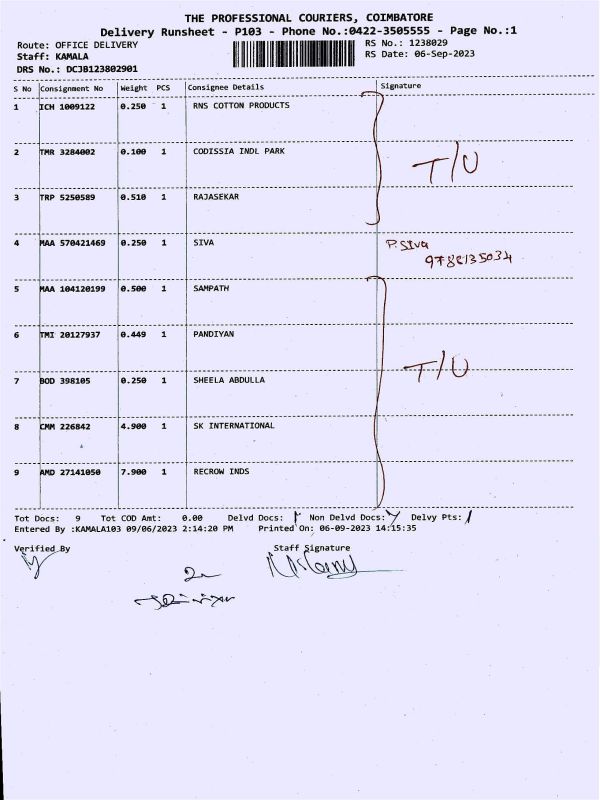 THE PROFESSIONAL COURIERS, COIMBATORE
Delivery Runsheet - P103 - Phone No.:0422-3505555 - Page No.:1
Route: OFFICE DELIVERY RS No.: 1238029
Staff: KAMALA RS Date: 06-Sep-2023
DRS No.: DCJB123802901
S No Consignment No Weight PCS Consignee Details Signature
1 ICH 1009122 0.250 1 RNS COTTON PRODUCTS
2 TMR 3284002 0.100 1 CODISSIA INDL PARK T/U
3 TRP 5250589 0.510 1 RAJASEKAR
4 MAA 570421469 0.250 1 SIVA P. Siva
5 MAA 104120199 0.500 1 SAMPATH
6 TMI 20127937 0.449 1 PANDIYAN
7 BOD 398105 0.250 1 SHEELA ABDULLA T/U
8 CMM 226842 4.900 1 SK INTERNATIONAL
9 AMD 27141050 7.900 1 RECROW INDS
Tot Docs: 9 Tot COD Amt: 0.00 Delvd Docs: Non Delvd Docs: Delvy Pts:
Entered By :KAMALA103 09/06/2023 2:14:20 PM Printed On: 06-09-2023 14:15:35
Verified By Staff Signature